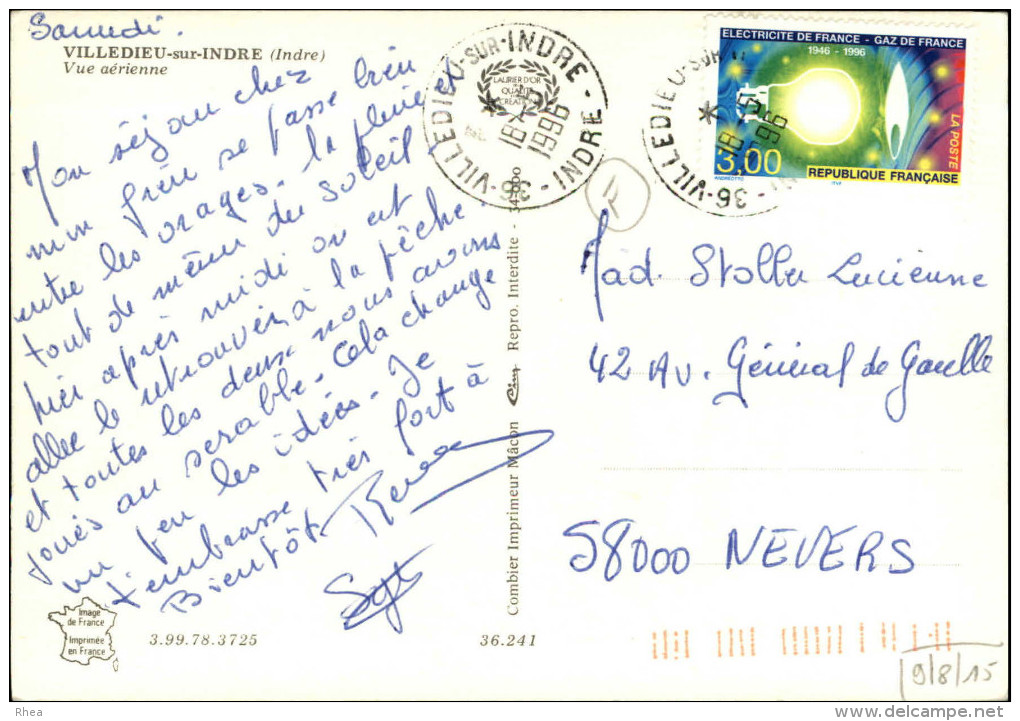 Samedi.
VILLEDIEU-sur-INDRE (Indre)
Vue aérienne
Mon séjour chez
mon frère se passe bien
entre les orages. la pluie et
tout de même du soleil
hier après midi on est
allée le retrouver à la pêche.
et toutes les deux nous avons
joués au scrable. Cela change
un peu les idées. Je
t'embrasse très fort à
Bientôt
Image
de France
Imprimée
en France
3.99.78.3725
36.241
Combier Imprimeur Mâcon Repro. Interdite -
36-VILLEDIEU-SUR-INDRE - INDRE
LAURIER D'OR
QUALITÉ
1996
ELECTRICITE DE FRANCE - GAZ DE FRANCE
1946 - 1996
LA POSTE
3,00
RÉPUBLIQUE FRANÇAISE
ANDREOTTO
36-VILLEDIEU-SUR
18
1996
Mad. Stoller Lucienne
42 Av. Général de Gaulle
58000 NEVERS
9/8/15
Rhea